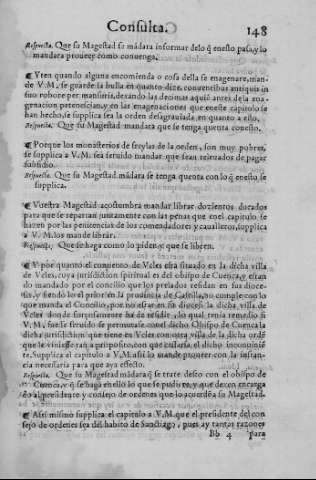 Consulta. 148
Respuesta. Que su Magestad se mādara informar delo q̄ enesto passa, y lo
mandara proueer como conuenga.
¶ Yten quando alguna encomienda o cosa della se enagenare, man-
de V.M. se guarde la bulla en quanto dize. conuencibus antiquis in
suo robore per manseris, dexando las dezimas aqui antes dela ena-
genacion pertenescian, y en las enagenaciones que eneste capitulo se
han hecho, se supplica sea la orden desagrauiada en quanto a ello.
Respuesta. Que su Magestad mandara que se tenga quenta conesto.
¶ Porque los monasterios de freylas de la orden, son muy pobres,
se supplica a V.M. sea seruido mandar que sean reseruados de pagar
subsidio.
Respuesta. Que su Magestad mādara se tenga quenta con lo q̄ enesto, se
supplica.
¶ Vuestra Magestad acostumbra mandar librar dozientos ducados
para que se reparran juntamente con las penas que enel capitulo se
hazen por las penitencias de los comendadores y caualleros, supplica
a V. M. los mande librar.
Respuesta. Que se haga como lo piden, y que se libren.
¶ Y por quanto el conuento de Vcles esta situado en la dicha villa
de Vcles, cuya jurisdiction spiritual es del obispo de Cuenca, y estan
do mandado por el concilio que los prelados residan en sus dioce-
sis, y siendo lo el prior en la prouincia de Castilla, no cumple con lo
que manda el Concilio, por no estar en su diocesi la dicha villa de
Vcles donde forçosamente ha de residir, lo qual tenia remedio si
V.M. fuesse seruido se permutasse conel dicho Obispo de Cuenca la
dicha jurisdiction que tiene en Vcles con otra villa de la dicha ordē
que le viniesse tan a proposito, con que cessaria el dicho inconuiniē
te. Supplica el capitulo a V.M. assi lo mande proueer con la instan-
cia necessaria para que aya effecto.
Respuesta. Que su Magestad mādara q̄ se trate desto con el obispo de
Cuenca, y q̄ se haga en ello lo que se pudiere, y que dexe encarga
do al presidente y consejo de ordenes que lo acuerdē a su Magestad.
¶ Assi mismo supplica el capitulo a V.M. que el presidente del con
sejo de ordenes sea del habito de Sanctiago, pues ay tantas razones
Bb 4 para